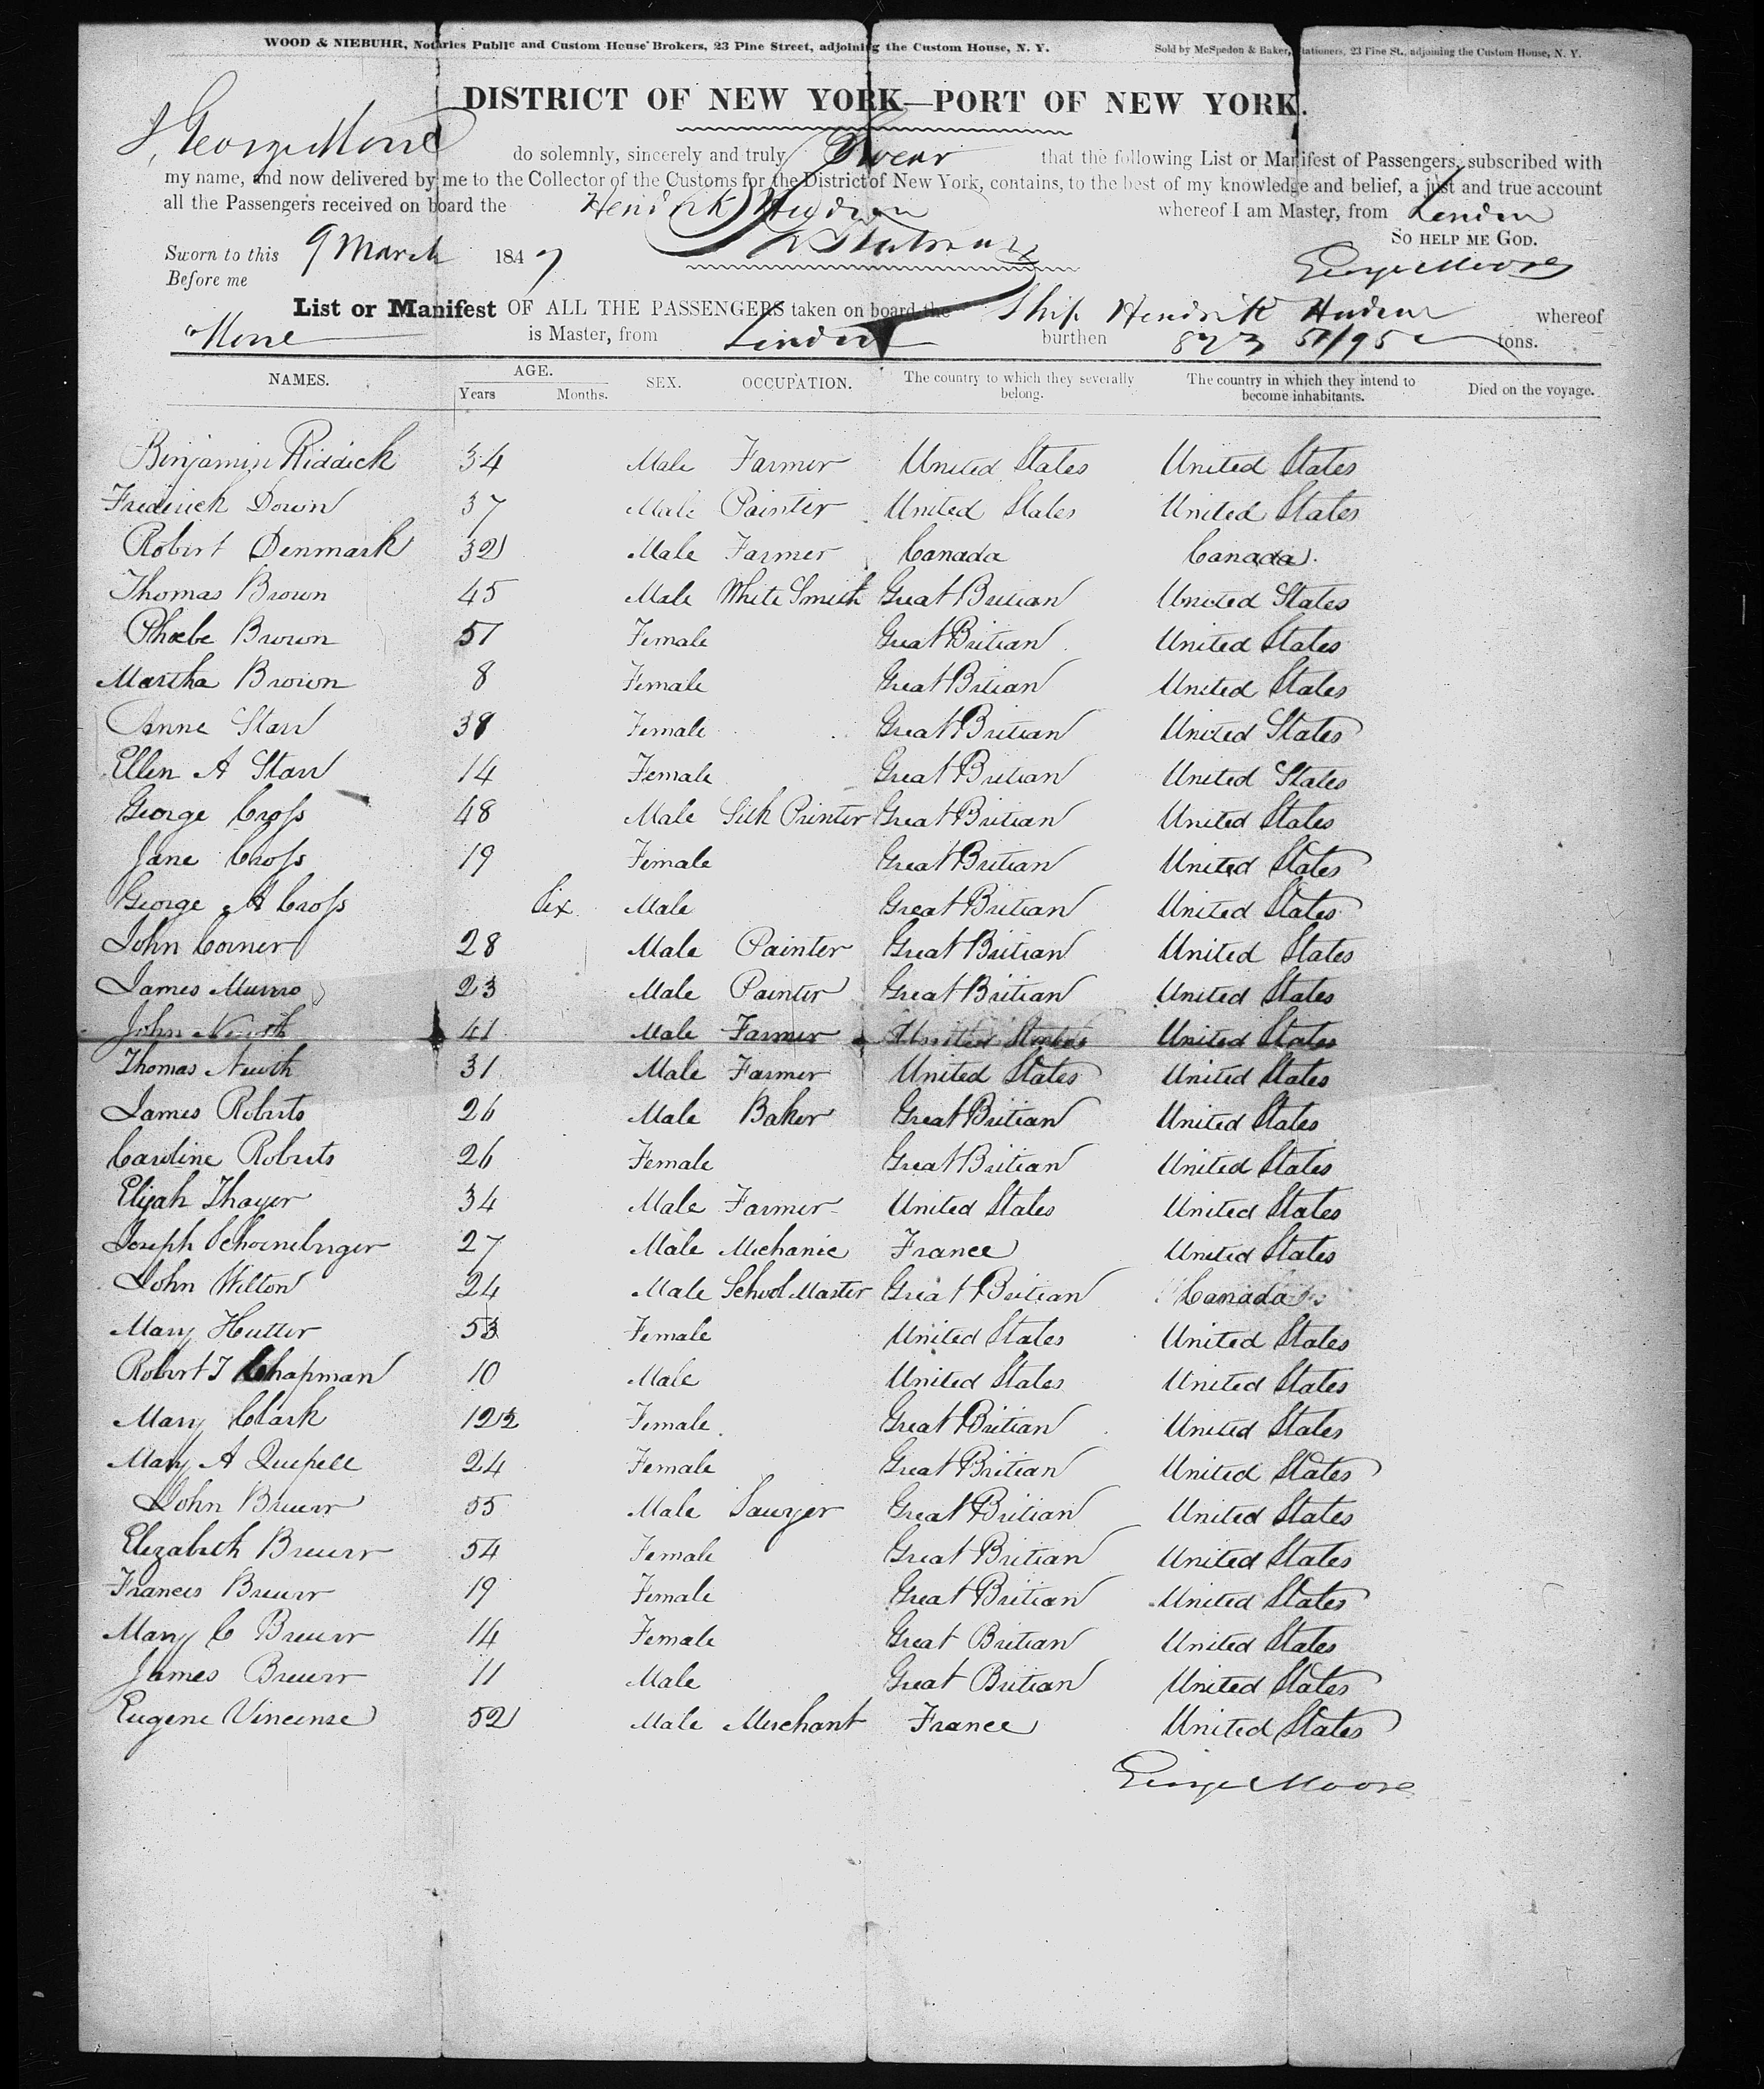 WOOD & NIEBUHR, Notaries Public and Custom House Brokers, 23 Pine Street, adjoining the Custom House, N. Y.
Sold by McSpedon & Baker, Stationers, 23 Pine St., adjoining the Custom House, N. Y.
DISTRICT OF NEW YORK—PORT OF NEW YORK.
I, George Moore do solemnly, sincerely and truly Swear that the following List or Manifest of Passengers, subscribed with
my name, and now delivered by me to the Collector of the Customs for the District of New York, contains, to the best of my knowledge and belief, a just and true account
all the Passengers received on board the Hendrik Hudson whereof I am Master, from London
SO HELP ME GOD.
Sworn to this 9 March 1847
Before me
George Moore
List or Manifest OF ALL THE PASSENGERS taken on board the Ship Hendrik Hudson whereof
Moore is Master, from London burthen 823 51/95 tons.
NAMES. AGE. SEX. OCCUPATION. The country to which they severally belong. The country in which they intend to become inhabitants. Died on the voyage.
Years Months.
Benjamin Riddick 34 Male Farmer United States United States
Frederick Down 37 Male Painter United States United States
Robert Denmark 32 Male Farmer Canada Canada
Thomas Brown 45 Male White Smith Great Britian United States
Phoebe Brown 51 Female Great Britian United States
Martha Brown 8 Female Great Britian United States
Anne Starr 38 Female Great Britian United States
Ellen A Starr 14 Female Great Britian United States
George Cross 48 Male Silk Printer Great Britian United States
Jane Cross 19 Female Great Britian United States
George A Cross Six Male Great Britian United States
John Corner 28 Male Painter Great Britian United States
James Munro 23 Male Painter Great Britian United States
John Newth 41 Male Farmer United States United States
Thomas Newth 31 Male Farmer United States United States
James Roberts 26 Male Baker Great Britian United States
Caroline Roberts 26 Female Great Britian United States
Elijah Thayer 34 Male Farmer United States United States
Joseph Schoeneburger 27 Male Mechanic France United States
John Wilton 24 Male School Master Great Britian Canada
Mary Hutter 53 Female United States United States
Robert T Chapman 10 Male United States United States
Mary Clark Female Great Britian United States
Mary A 24 Female Great Britian United States
John Brewer 55 Male Sawyer Great Britian United States
Elizabeth Brewer 54 Female Great Britian United States
Frances Brewer 19 Female Great Britian United States
Mary C Brewer 14 Female Great Britian United States
James Brewer 11 Male Great Britian United States
Eugene Vincense 52 Male Merchant France United States
George Moore